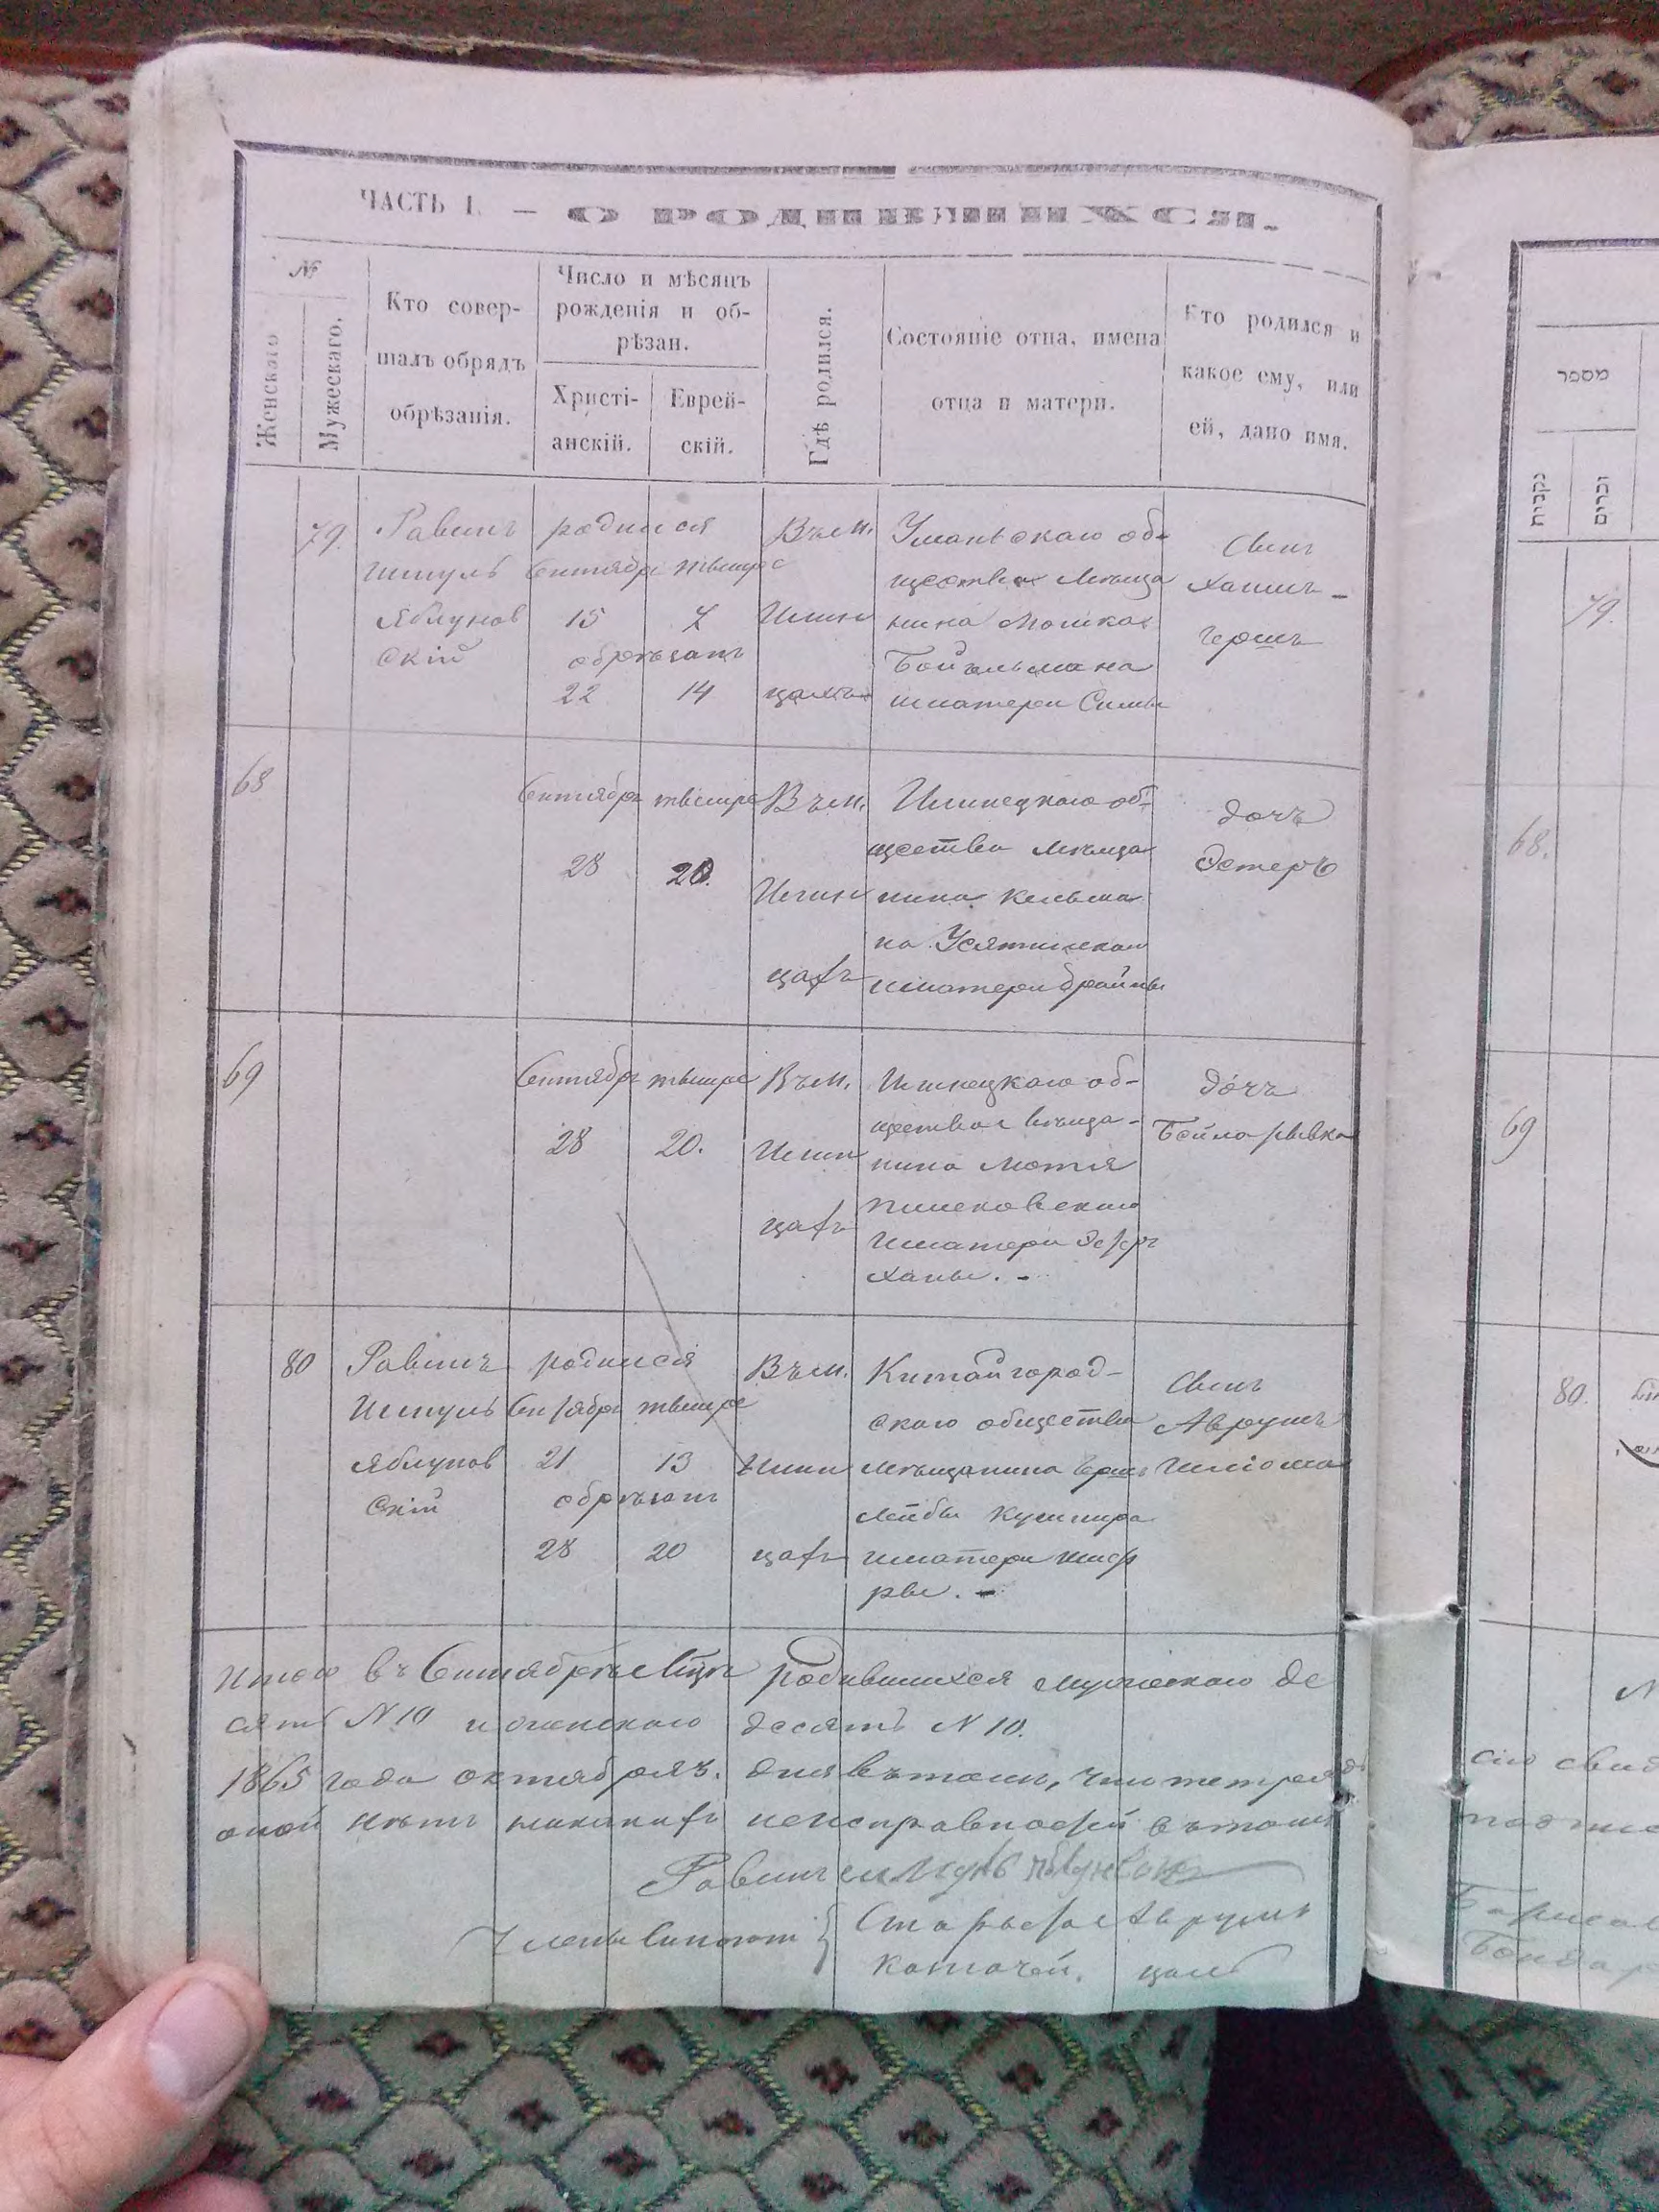 ЧАСТЬ I. — О РОДИВШИХСЯ.
№
Женскаго
Мужескаго.
Кто совер-
шалъ обрядъ
обрѣзанія.
Число и мѣсяцъ
рожденія и об-
рѣзан.
Христі-
анскій.
Еврей-
скій.
Гдѣ родился.
Состояніе отца, имена
отца и матери.
Кто родился и
какое ему, или
ей, дано имя.
79.
Равинъ
Шмуль
Яблунов
скій
родился
Сентябрь тишре
15 7
обрѣзанъ
22 14
Въ м.
Илин
цахъ
Уманьскаго об-
щества мѣща
нина Мошка
и матери Симы
Сынъ
Хаимъ-
Гершъ
68
Сентября тишре
28 20.
Въ м.
Илин
цахъ
Илинецкаго об-
щества мѣща
нина Кельма
на Усятинскаго
и матери Брайны
дочь
Эстеръ
69
Сентябрь тишре
28 20.
Въ м.
Илин
цахъ
Илинецкаго об-
щества мѣща-
нина Мотя
и матери
Ханы. -
дочь
Бейла Рывка
80
Равинъ
Шмуль
Яблунов
скій
родился
Сентябрь тишре
21 13
обрѣзанъ
28 20
Въ м.
Илин
цахъ
Китайгород-
скаго общества
мѣщанина Герш
Лейбы Кушнира
и матери Шиф
ры. -
Сынъ
Аврумъ
Шлiома
Итого въ Сентябрѣ Мцѣ родившихся мужескаго де
сять N 10 и женскаго десять N 10.
1865 года октября дня въ томъ, что
оной нѣтъ никакихъ неисправностей въ томъ
Равинъ Шмуль Яблуновскі
Члены { Староста Аврумъ
מספר
נקבות
זכרים
79.
68.
69
80.